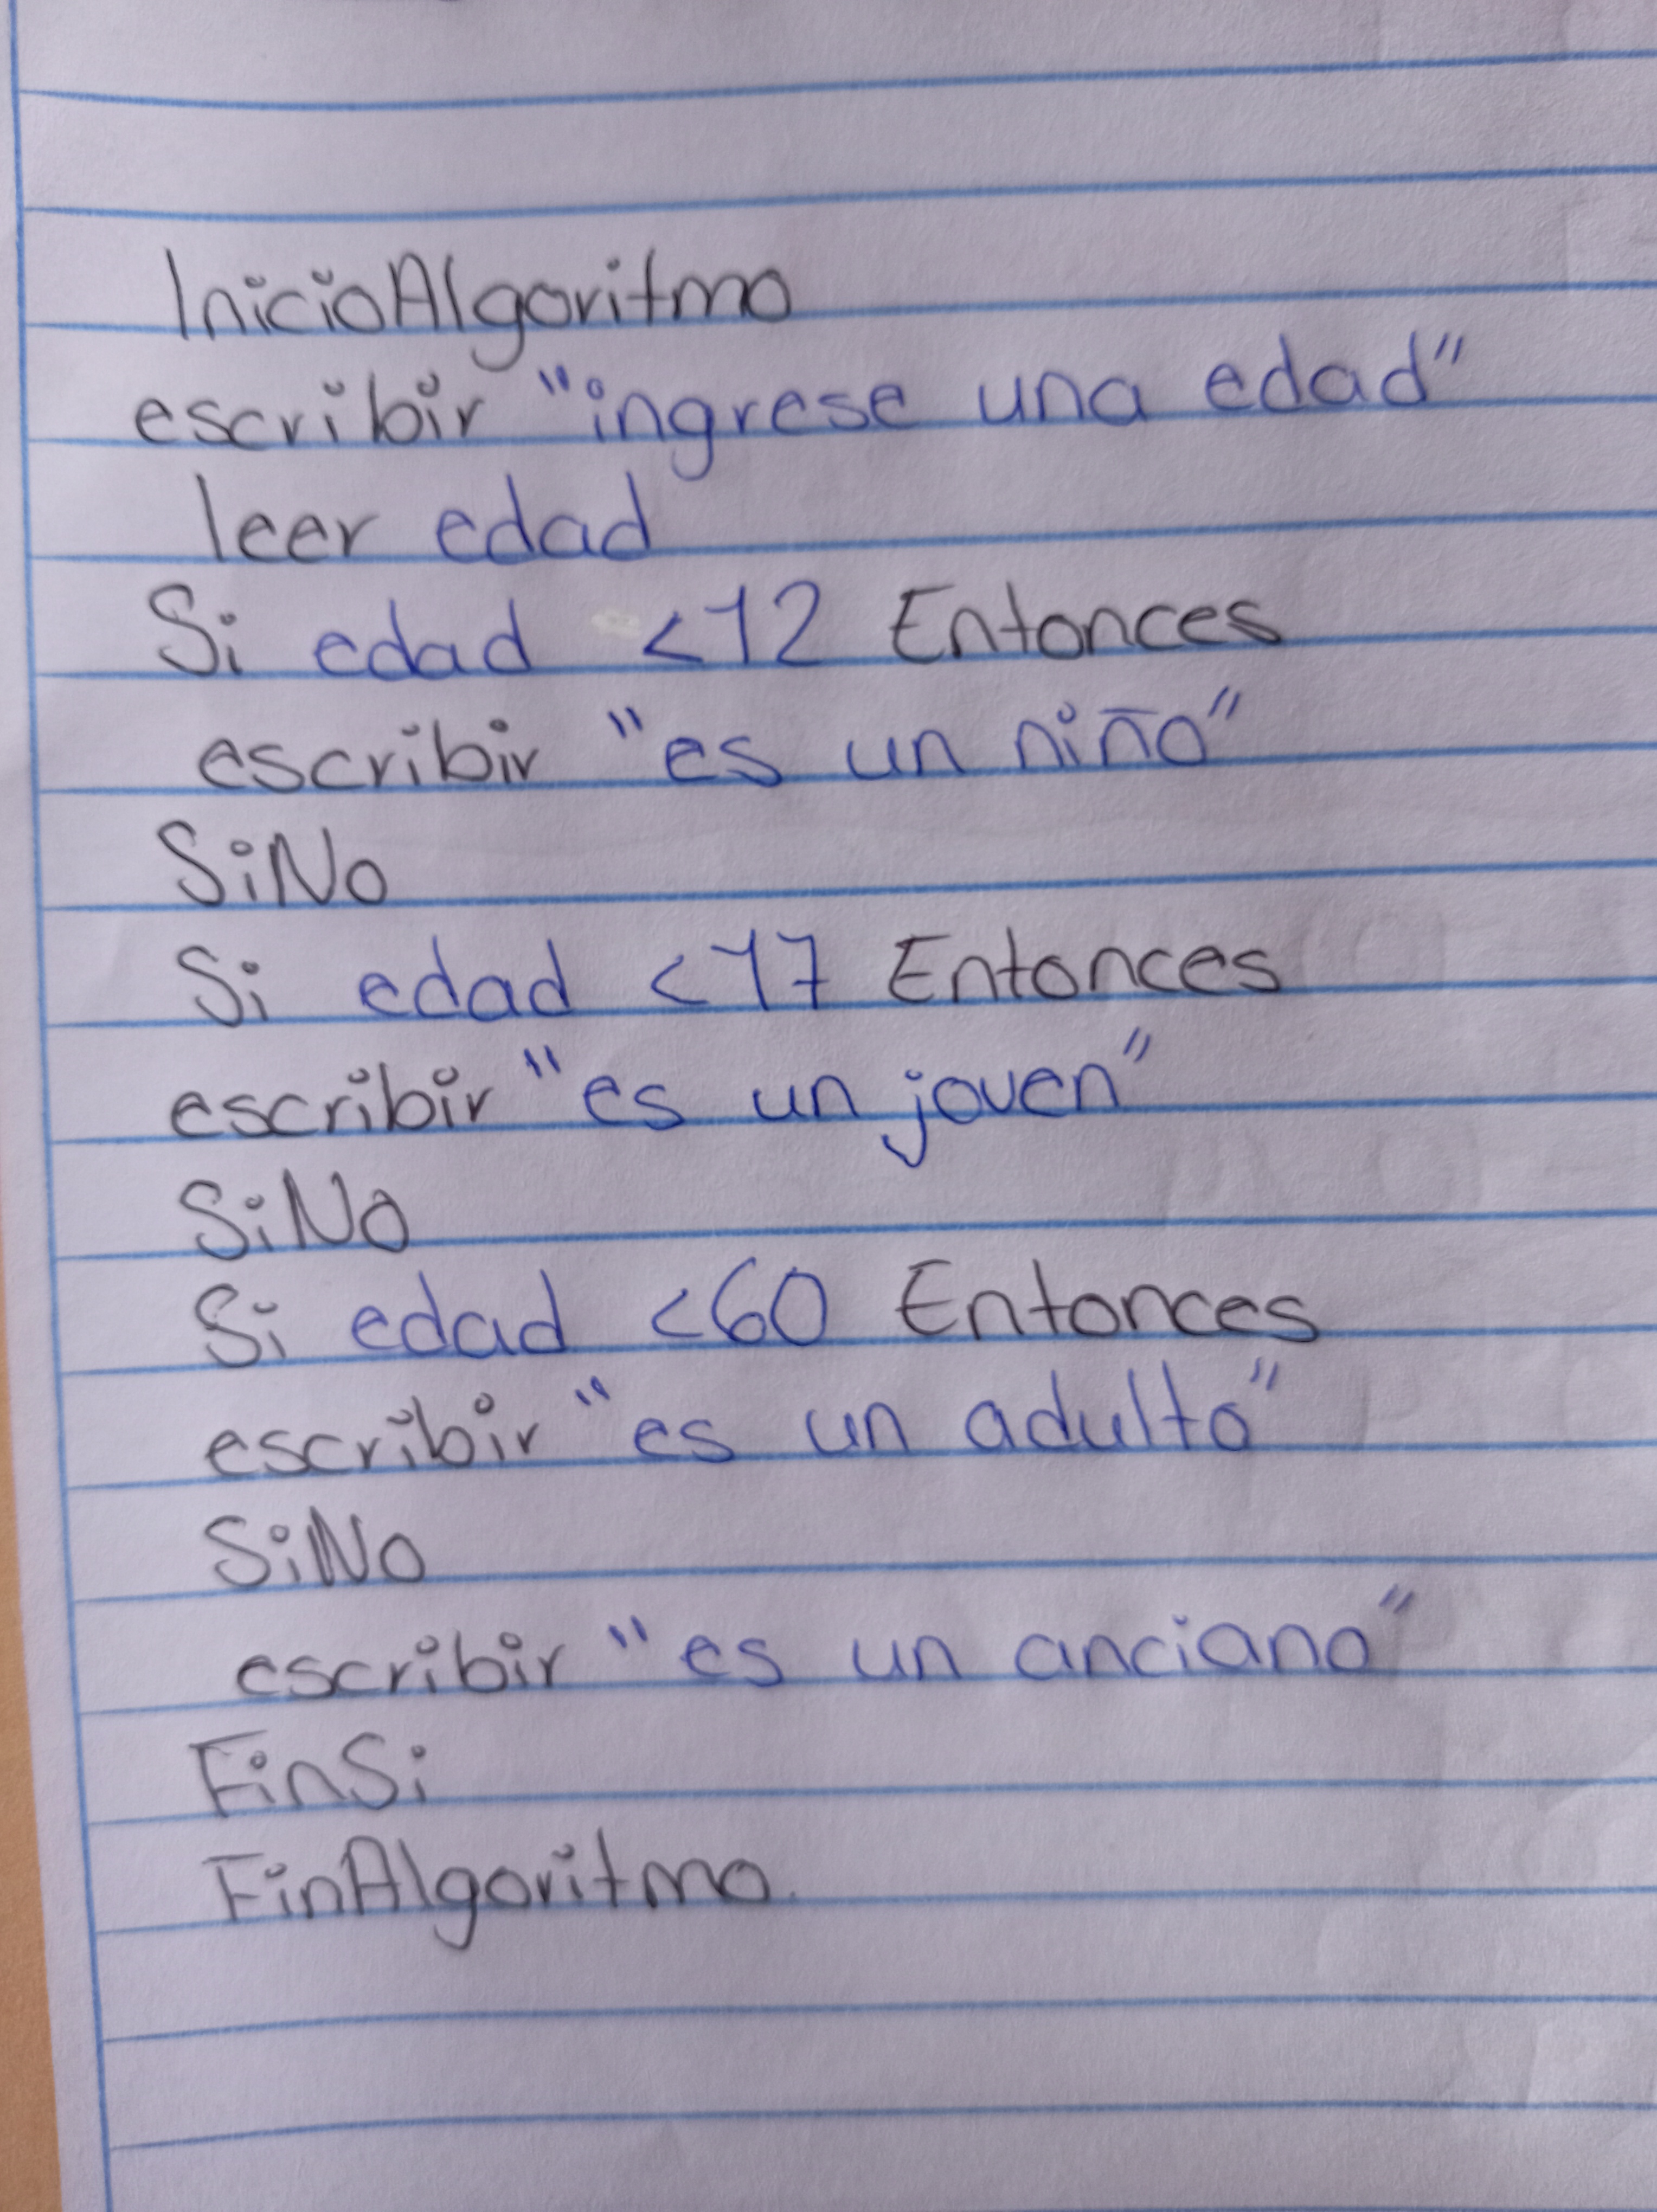 InicioAlgoritmo
escribir "ingrese una edad"
leer edad
Si edad <12 Entonces
escribir "es un niño"
SiNo
Si edad <17 Entonces
escribir "es un joven"
SiNo
Si edad <60 Entonces
escribir "es un adulto"
SiNo
escribir "es un anciano"
FinSi
FinAlgoritmo.